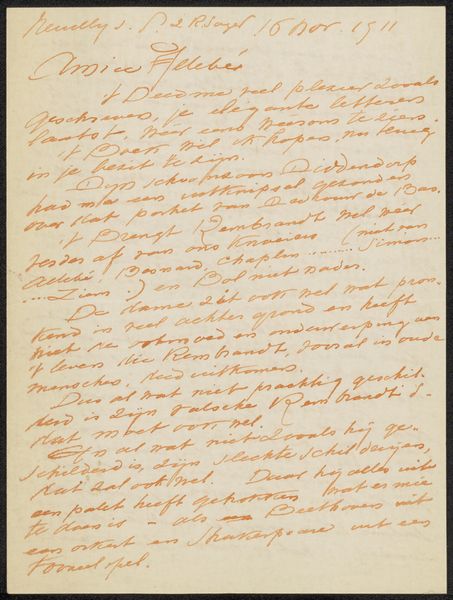 Neuilly s. S. 2 R. Soyer 16 Nov. 1911
Amice Allebé
't Deed me veel plezier zooals
geschreven, je elegante letteren
laatst, weer eens te
't Boek wil ik hopen, nu terug
in je bezit te zijn.
Dijsselhoff Diddendorp
had me een uitknipsel gezonden
over dat portret van de Bas.
't Brengt Rembrandt wel meer
verder af van ons (niet van
Allebé, Besnard, Chaplin ......... Simon
.... Ziem .) en Bol niet nader.
De dame ziet ook wel wat
in veel achter grond en heeft
niet de en onderwerping van
't leven die Rembrandt, vooral in oude
menschen, deed uitkomen.
Dus al wat niet prachtig geschil
derd is zijn valsche Rembrandt's.
dat moet ook wel.
En al wat niet zooals hij ge-
schilderd is, zijn slechte schilderijen,
dat zal ook wel. Daar hij alles uit
een palet heeft getrokken wat er mee
te doen is - als Beethoven uit
een orkest en Shakespeare uit een
tooneelspel.